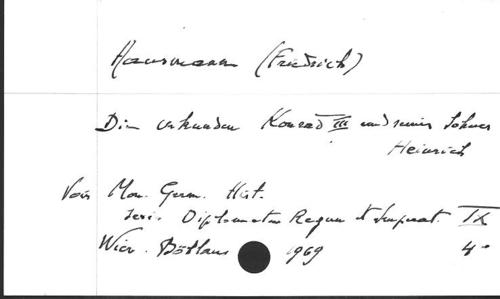 Hausmann (Friedrich)
Die Urkunden Konrad III und seines Sohnes
Heinrich
Voir Mon. Germ. Hist.
Serie Diplomatum Regum et Imperat. IX
Wien. Böhlaus 1969 4°